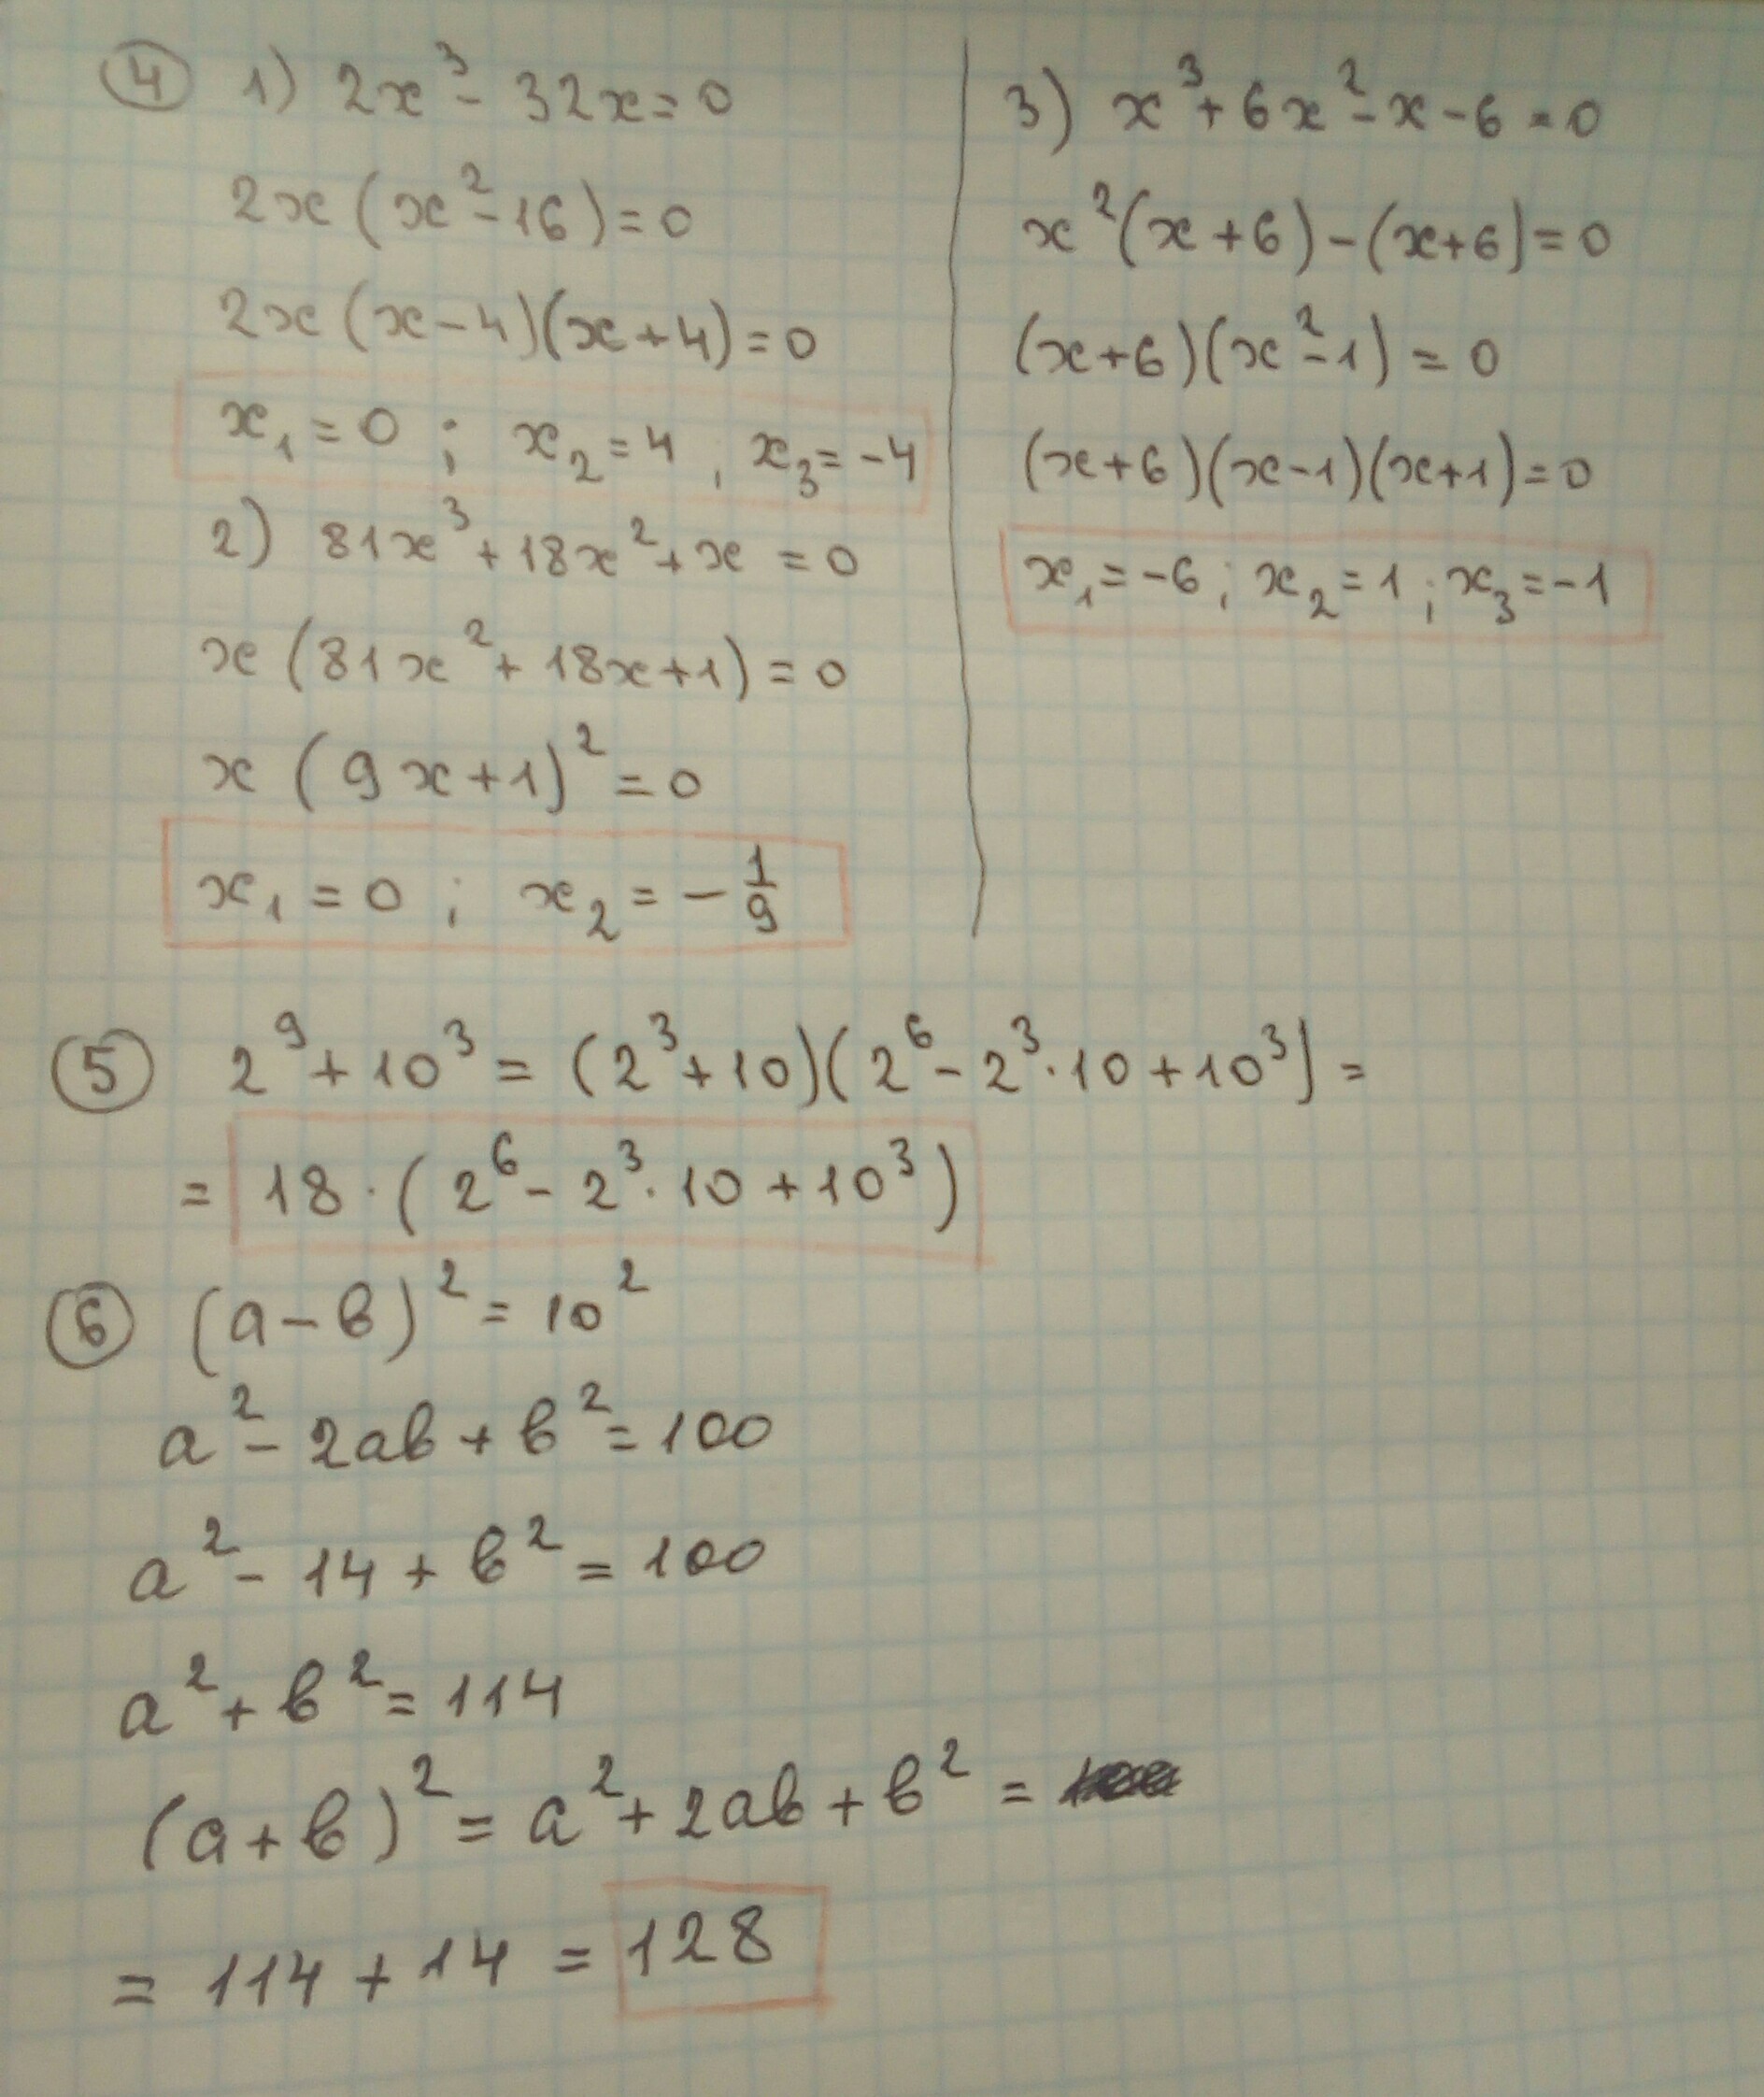 ④ 1) 2x³ - 32x = 0
2x (x² - 16) = 0
2x (x - 4)(x + 4) = 0
x₁ = 0 ; x₂ = 4 ; x₃ = -4
2) 81x³ + 18x² + x = 0
x (81x² + 18x + 1) = 0
x (9x + 1)² = 0
x₁ = 0 ; x₂ = -1/9
3) x³ + 6x² - x - 6 = 0
x² (x + 6) - (x + 6) = 0
(x + 6)(x² - 1) = 0
(x + 6)(x - 1)(x + 1) = 0
x₁ = -6 ; x₂ = 1 ; x₃ = -1
⑤ 2⁹ + 10³ = (2³ + 10)(2⁶ - 2³ · 10 + 10³) =
= 18 · (2⁶ - 2³ · 10 + 10³)
⑥ (a - b)² = 10²
a² - 2ab + b² = 100
a² - 14 + b² = 100
a² + b² = 114
(a + b)² = a² + 2ab + b² =
= 114 + 14 = 128